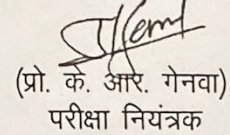 (प्रो. के. आर. गेनवा)
परीक्षा नियंत्रक